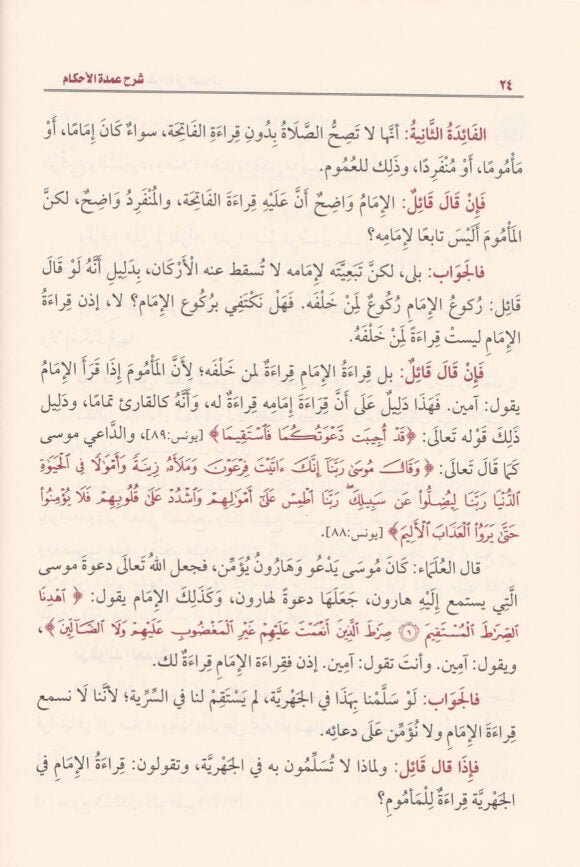 ٢٤ شرح عمدة الأحكام
الفَائِدَةُ الثَّانِيةُ: أنَّها لا تَصِحُّ الصَّلاَةُ بِدُونِ قِراءَةِ الفَاتِحَة، سواءٌ كَانَ إمَامًا، أَوْ
مَأْمُومًا، أَوْ مُنْفَرِدًا، وَذَلِك للعُمُوم.
فَإِنْ قَالَ قَائِلٌ: الإمَامُ وَاضِحٌ أَنَّ عَلَيْهِ قِرَاءَةَ الفَاتِحَة، والمُنْفَرِدُ وَاضِحٌ، لكنَّ
المَأْمُومَ أَلَيْسَ تابعًا لإمَامِه؟
فالجَوَاب: بلى، لكنَّ تَبَعِيَّتَه لإمَامه لا تُسقط عنه الأرْكَان، بِدَلِيلِ أَنَّهُ لَوْ قَالَ
قَائِل: رُكوعُ الإمَامِ رُكُوعٌ لمَنْ خَلْفَه. فَهَلْ نَكْتَفِي بِرُكُوعِ الإمَام؟ لا، إذن قِراءَةُ
الإمَامِ ليستْ قِراءَةً لِمَنْ خَلْفَهُ.
فَإنْ قَالَ قَائِلٌ: بل قِراءَةُ الإمَامِ قِرَاءَةٌ لمن خَلْفَه؛ لِأنَّ المَأْمُومَ إذَا قَرَأَ الإمَامُ
يقول: آمين. فَهَذَا دَلِيلٌ عَلَى أَنَّ قِرَاءَةَ إِمَامِه قِرَاءةٌ له، وَأَنَّهُ كالقارئ تمامًا، ودَلِيل
ذَلِكَ قَوْله تَعَالَى: ﴿قَدْ أُجِيبَت دَّعْوَتُكُمَا فَٱسْتَقِيمَا﴾ [يونس:٨٩]، والدَّاعي موسى
كَمَا قَالَ تَعَالَى: ﴿وَقَالَ مُوسَىٰ رَبَّنَآ إِنَّكَ ءَاتَيْتَ فِرْعَوْنَ وَمَلَأَهُۥ زِينَةً وَأَمْوَٰلًا فِى ٱلْحَيَوٰةِ
ٱلدُّنْيَا رَبَّنَا لِيُضِلُّوا۟ عَن سَبِيلِكَ ۖ رَبَّنَا ٱطْمِسْ عَلَىٰٓ أَمْوَٰلِهِمْ وَٱشْدُدْ عَلَىٰ قُلُوبِهِمْ فَلَا يُؤْمِنُوا۟
حَتَّىٰ يَرَوُا۟ ٱلْعَذَابَ ٱلْأَلِيمَ﴾ [يونس:٨٨].
قال العُلَمَاء: كَانَ مُوسَى يَدْعُو وَهَارُونُ يُؤَمِّن، فجعل اللهُ تَعَالَى دعوةَ موسى
الَّتِي يستمع إِلَيْهِ هارون، جَعَلَهَا دعوةً لهارون، وَكَذَلِكَ الإمَام يقول: ﴿ٱهْدِنَا
ٱلصِّرَٰطَ ٱلْمُسْتَقِيمَ ۝٦ صِرَٰطَ ٱلَّذِينَ أَنْعَمْتَ عَلَيْهِمْ غَيْرِ ٱلْمَغْضُوبِ عَلَيْهِمْ وَلَا ٱلضَّآلِّينَ﴾،
ويقول: آمين. وأنتَ تقول: آمين. إذن فقِراءَة الإمَامِ قِراءَةٌ لك.
فالجَوَاب: لَوْ سَلَّمْنا بِهَذَا في الجَهْرِيَّة، لم يَسْتَقِمْ لنا في السِّرِّية؛ لأنَّنا لَا نسمع
قِراءَةَ الإمَامِ ولا نُؤَمِّن عَلَى دعائِه.
فَإِذَا قال قَائِل: ولماذا لا تُسَلِّمُون به في الجَهْرِيَّة، وتقولون: قِراءَةُ الإمَامِ في
الجَهْرِيَّة قِراءَةٌ لِلْمَأمُومِ؟